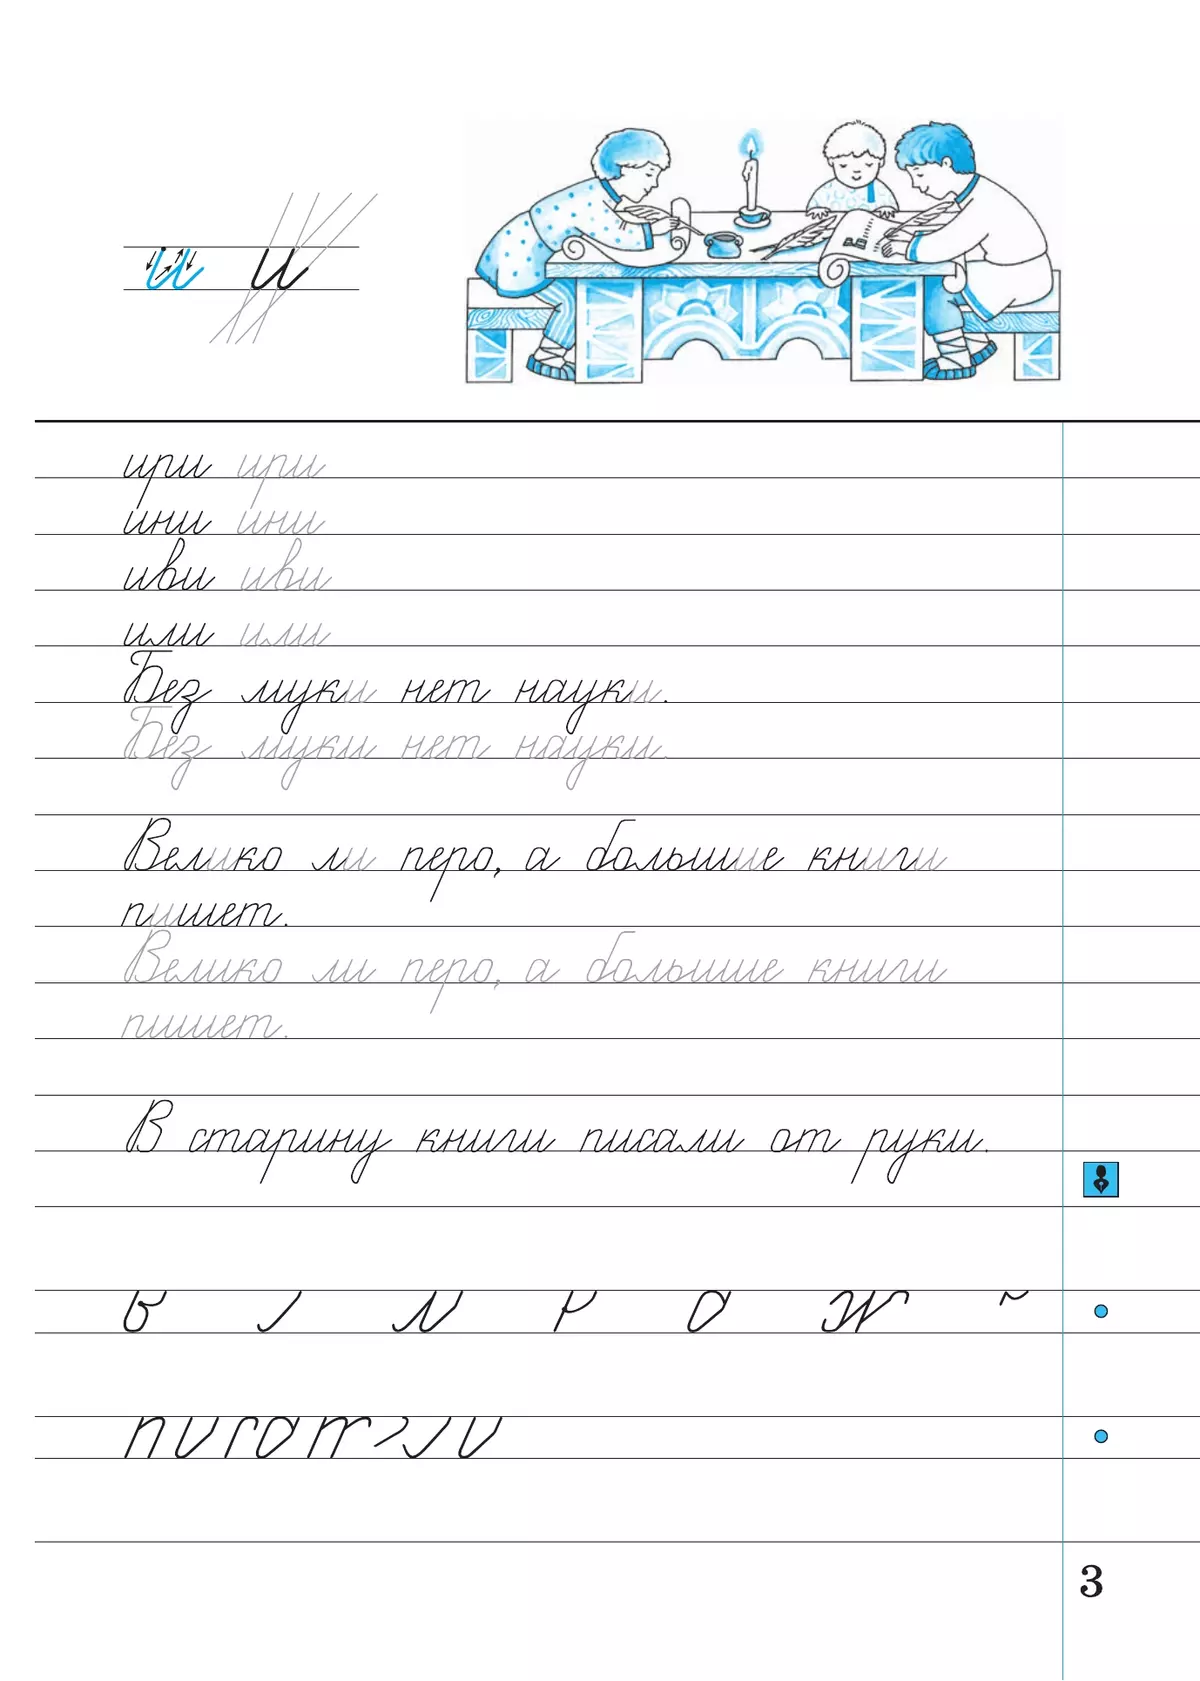 и и
ири ири
ини ини
иви иви
или или
Без муки нет науки.
Без муки нет науки.
Велико ли перо, а большие книги
пишет.
Велико ли перо, а большие книги
пишет.
В старину книги писали от руки.
3